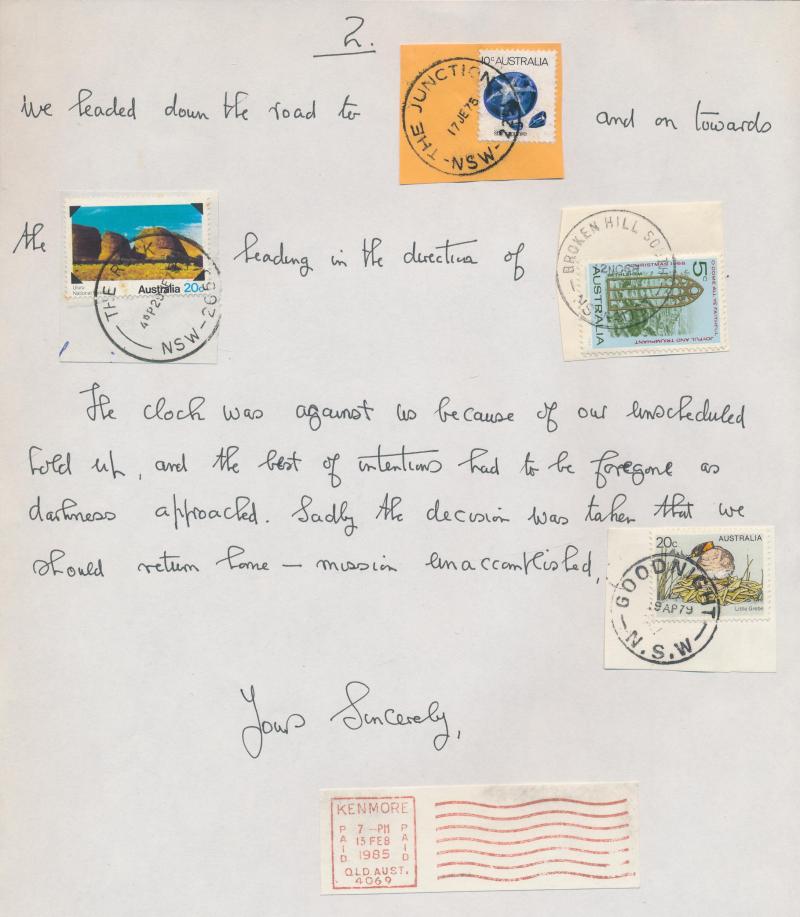 2.
10c AUSTRALIA
THE JUNCTION
17 JE 75
NSW
we headed down the road to and on towards
the heading in the direction of
THE ROCK
NSW
Uluru
National
Australia 20c
BROKEN HILL SOUTH
5c
AUSTRALIA
O COME ALL YE FAITHFUL
JOYFUL AND TRIUMPHANT
The clock was against us because of our unscheduled
hold up, and the best of intentions had to be foregone as
darkness approached. Sadly the decision was taken that we
should return home — mission unaccomplished.
20c AUSTRALIA
Little Grebe
GOODNIGHT
9 AP 79
N.S.W
Yours Sincerely,
KENMORE
PAID
7-PM
13 FEB
1985
PAID
QLD. AUST.
4069